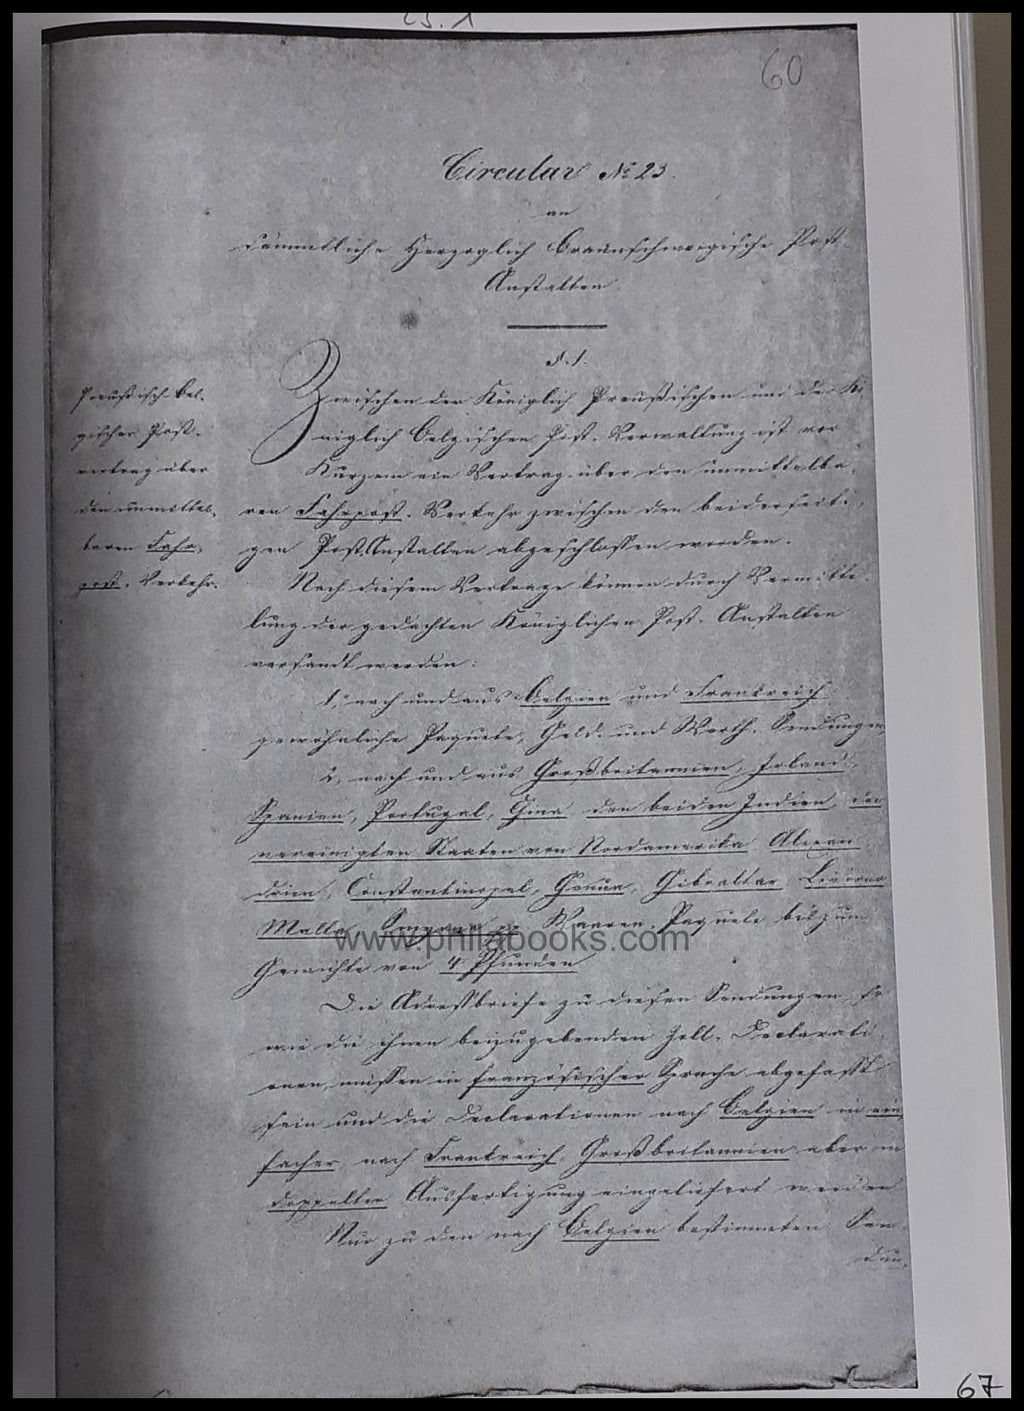 23.1
60
Circular No 23.
an
sämmtliche Herzoglich Braunschweigische Post-
Anstalten.
§. 1.
Preußisch-Bel-
gischer Post-
vertrag über
den unmittel-
baren Fahr-
post-Verkehr.
Zwischen der Königlich Preußischen und der Kö-
niglich Belgischen Post-Verwaltung ist vor
Kurzem ein Vertrag über den unmittelba-
ren Fahrpost-Verkehr zwischen den beiderseiti-
gen Post-Anstalten abgeschlossen worden.
Nach diesem Vertrage können durch Vermitte-
lung der gedachten Königlichen Post-Anstalten
versandt werden:
1, nach und aus Belgien und Frankreich
gewöhnliche Paquete, Geld- und Werth-Sendungen
2, nach und aus Großbritannien, Irland,
Spanien, Portugal, den beiden Indien, den
vereinigten Staaten von Nordamerika, Alexan-
drien, Constantinopel, Genua, Gibraltar, Livorno
Malta, Smyrna Waaren-Paquete bis zum
Gewichte von 4 Pfunden.
Die Adreßbriefe zu diesen Sendungen, so
wie die ihnen beizugebenden Zoll-Declarati-
onen, müssen in französischer Sprache abgefaßt
sein und die Declarationen nach Belgien in ein-
facher, nach Frankreich, Großbritannien aber in
doppelter Ausfertigung eingeliefert werden.
Nur zu den nach Belgien bestimmten Sen-
dun-
www.philabooks.com
67